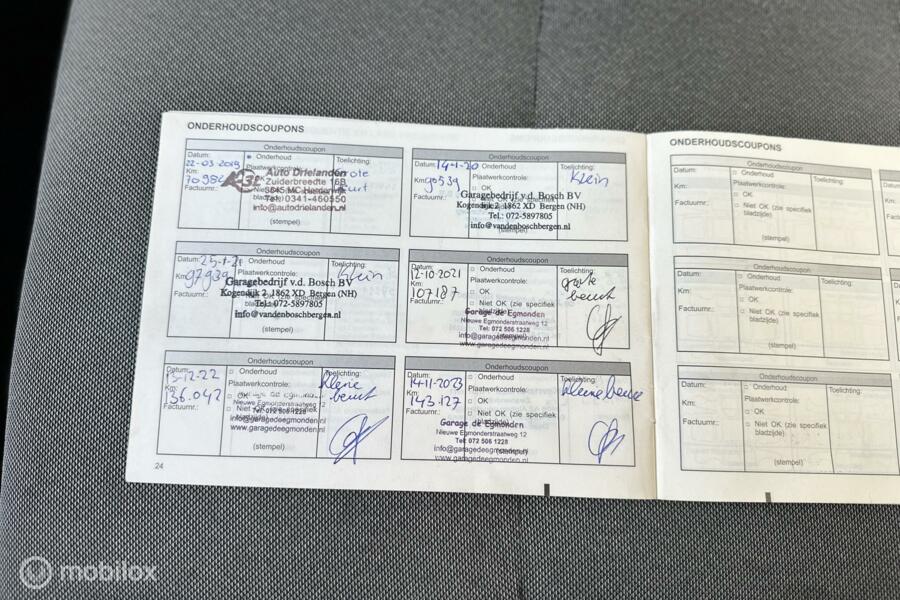 ONDERHOUDSCOUPONS
Onderhoudscoupon
Datum:
22-03 2019
Km:
Factuurnr.:
Onderhoud
Plaatwerkcontrole:
Toelichting:
Auto Drielanden
Zuiderbreedte 16B
Tel: 0341-460550
info@autodrielanden.nl
(stempel)
Onderhoudscoupon
Datum:
14-1-20
Km:
90539
Factuurnr.:
Onderhoud
Plaatwerkcontrole:
OK
Toelichting:
Klein
Garagebedrijf v.d. Bosch BV
Kogendijk 2, 1862 XD Bergen (NH)
Tel.: 072-5897805
info@vandenboschbergen.nl
(stempel)
Onderhoudscoupon
Datum:
25-1-21
Km:
97939
Factuurnr.:
Onderhoud
Plaatwerkcontrole:
Toelichting:
Klein
Garagebedrijf v.d. Bosch BV
Kogendijk 2, 1862 XD Bergen (NH)
Tel.: 072-5897805
info@vandenboschbergen.nl
(stempel)
Onderhoudscoupon
Datum:
12-10-2021
Km:
107187
Factuurnr.:
Onderhoud
Plaatwerkcontrole:
OK
Niet OK (zie specifiek
Toelichting:
grote
beurt
Garage de Egmonden
Nieuwe Egmonderstraatweg 12
Tel: 072 506 1228
info@garagedeegmonden.nl
www.garagedeegmonden.nl
Onderhoudscoupon
Datum:
13-12-22
Km:
136.042
Factuurnr.:
Onderhoud
Plaatwerkcontrole:
OK
Niet OK (zie specifiek
Toelichting:
kleine
beurt
Nieuwe Egmonderstraatweg 12
Tel: 072 506 1228
info@garagedeegmonden.nl
www.garagedeegmonden.nl
(stempel)
Onderhoudscoupon
Datum:
14-11-2023
Km:
143.127
Factuurnr.:
Onderhoud
Plaatwerkcontrole:
OK
Niet OK (zie specifiek
Toelichting:
kleine beurt
Garage de Egmonden
Nieuwe Egmonderstraatweg 12
Tel: 072 506 1228
info@garagedeegmonden.nl
www.garagedeegmonden.nl
(stempel)
24
ONDERHOUDSCOUPONS
Onderhoudscoupon
Datum:
Km:
Factuurnr.:
Onderhoud
Plaatwerkcontrole:
OK
Niet OK (zie specifiek
bladzijde)
Toelichting:
(stempel)
Onderhoudscoupon
Datum:
Km:
Factuurnr.:
Onderhoud
Plaatwerkcontrole:
OK
Niet OK (zie specifiek
bladzijde)
Toelichting:
(stempel)
Onderhoudscoupon
Datum:
Km:
Factuurnr.:
Onderhoud
Plaatwerkcontrole:
OK
Niet OK (zie specifiek
bladzijde)
Toelichting:
(stempel)
mobilox